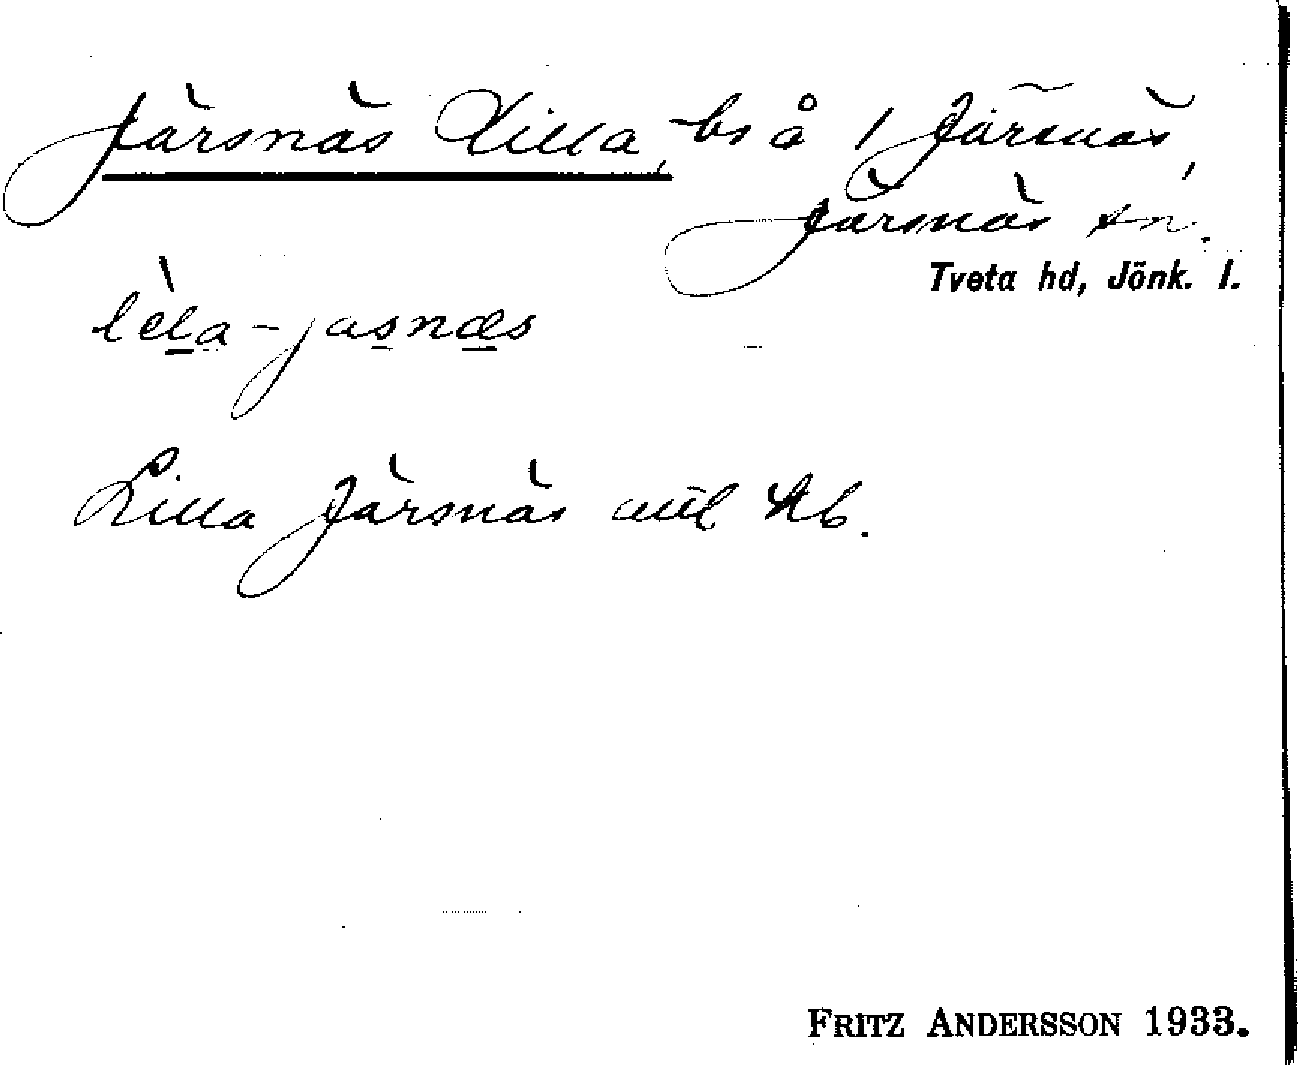 Järsnäs Lilla, bs å 1 Järsnäs,
Järsnäs sn.
Tveta hd, Jönk. l.
lèla-jasnæs
Lilla Järsnäs enl kb.
FRITZ ANDERSSON 1933.